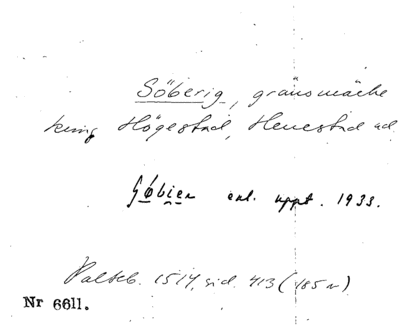 Söberig, gränsmärke
kring Högestad, Henestad ad.
søbien enl. uppt. 1933.
Palteb. 1514, sid. 413 (185 v)
Nr 6611.